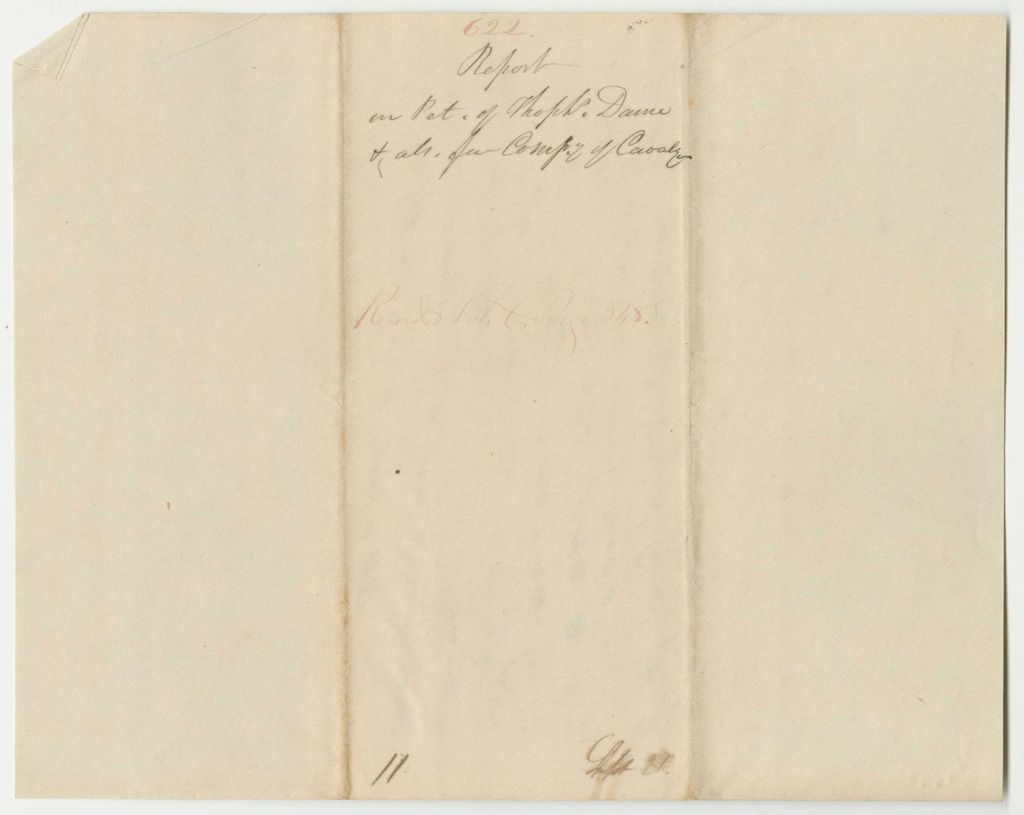 622.
Report
on Pet. of Thophs. Dame
& als. for Compy of Cavaly
Recorded Vol. 6. Page 348.
11 Sept 21.